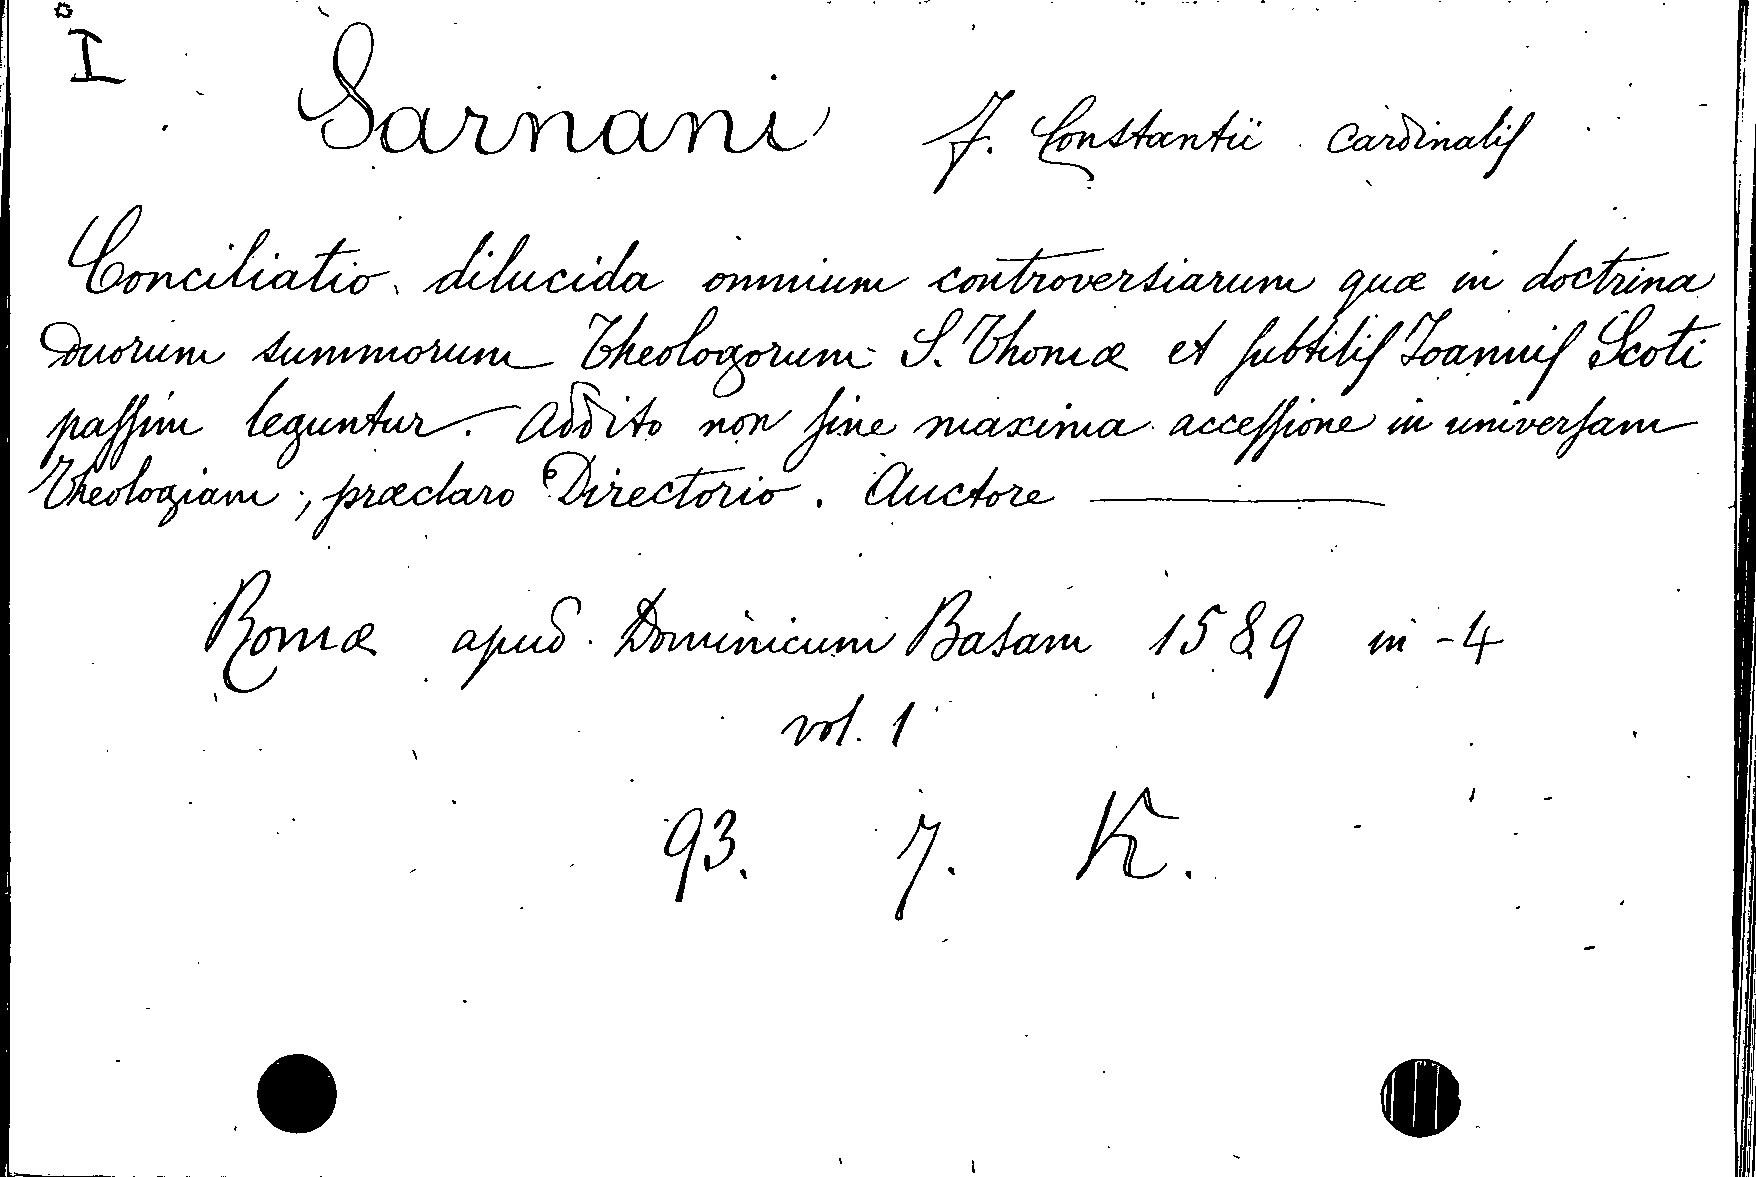 I
Sarnani F. Constantii cardinalis
Conciliatio dilucida omnium controversiarum quæ in doctrina
duorum summorum Theologorum S. Thomæ et subtilis Joannis Scoti
passim leguntur. Addito non sine maxima accessione in universam
Theologiam, præclaro Directorio. Auctore ———
Romæ apud Dominicum Basam 1589 in-4
vol. 1
93. 7. K.